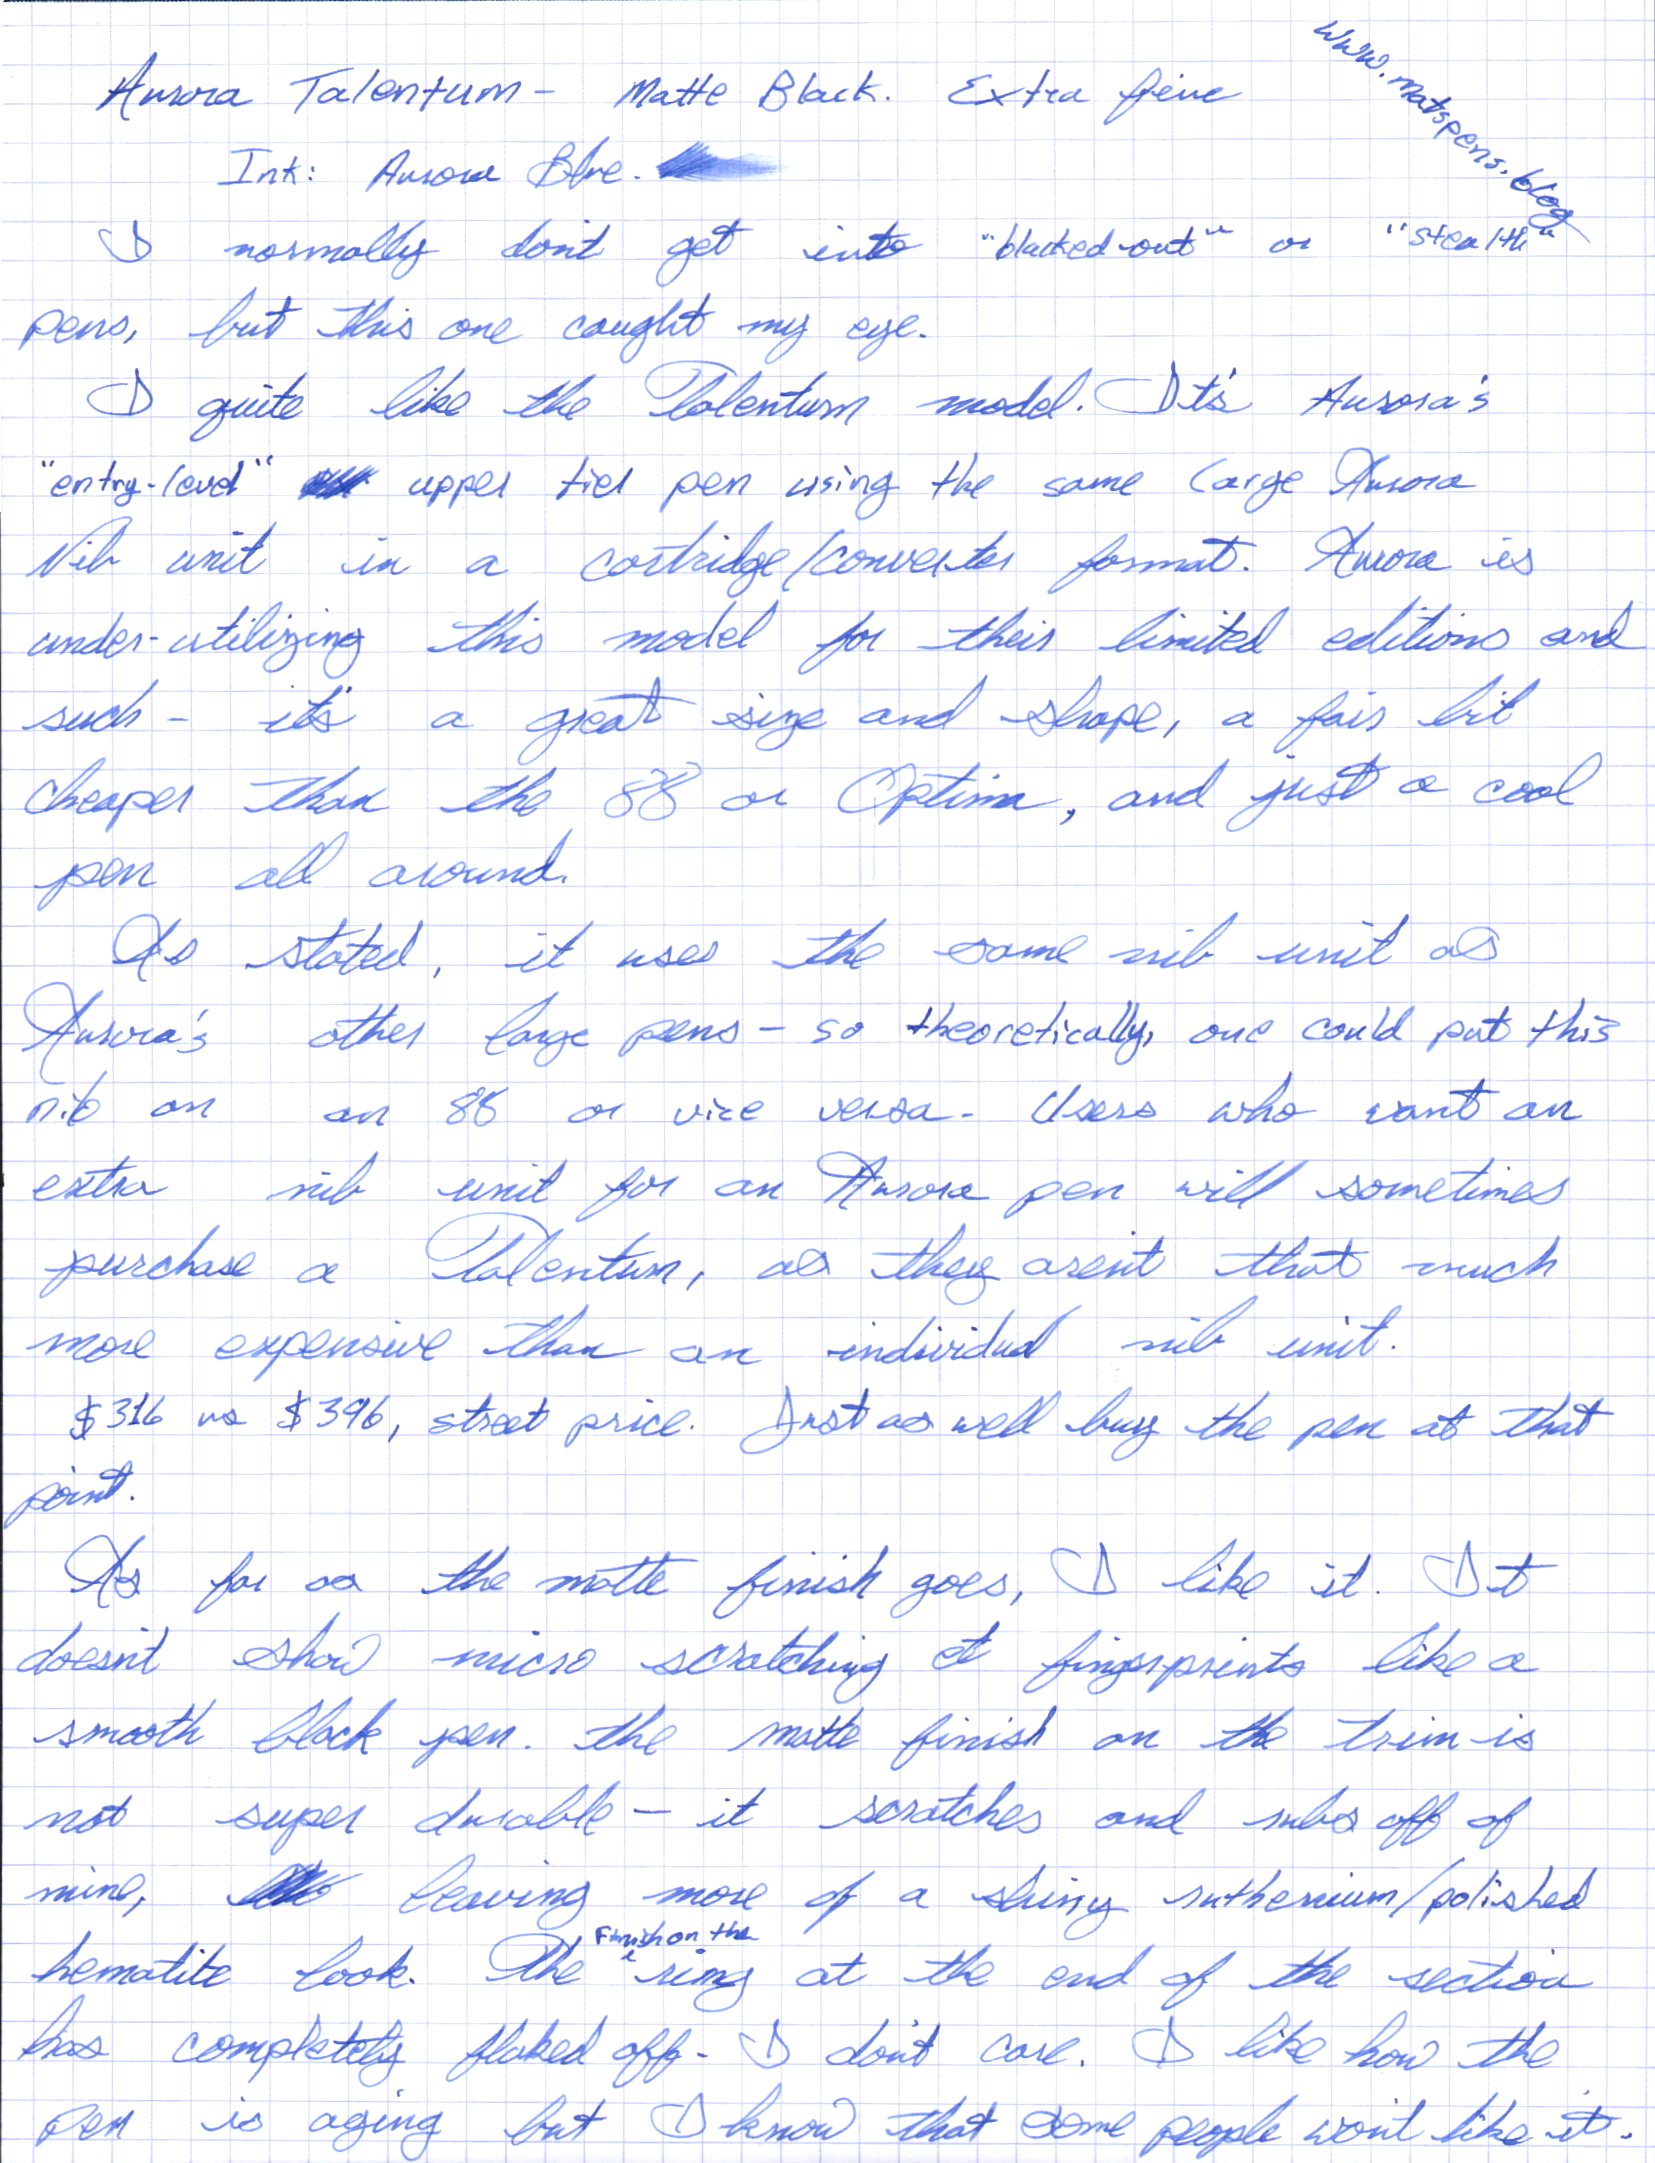 www.matspens.blog
Aurora Talentum - Matte Black. Extra fine
Ink: Aurora Blue.
I normally don't get into "blacked-out" or "stealth"
pens, but this one caught my eye.
I quite like the Talentum model. It's Aurora's
"entry-level" upper tier pen using the same large Aurora
Nib unit in a cartridge/converter format. Aurora is
under-utilizing this model for their limited editions and
such - it's a great size and shape, a fair bit
cheaper than the 88 or Optima, and just a cool
pen all around.
As stated, it uses the same nib unit as
Aurora's other large pens - so theoretically, one could put this
nib on an 88 or vice versa. Users who want an
extra nib unit for an Aurora pen will sometimes
purchase a Talentum, as they aren't that much
more expensive than an individual nib unit.
$316 vs $396, street price. Just as well buy the pen at that
point.
As far as the matte finish goes, I like it. It
doesn't show micro scratching et fingerprints like a
smooth black pen. the matte finish on the trim is
not super durable - it scratches and rubs off of
mine, leaving more of a shiny ruthenium/polished
hematite look. The finish on the ring at the end of the section
has completely flaked off. I don't care. I like how the
pen is aging but I know that some people won't like it.